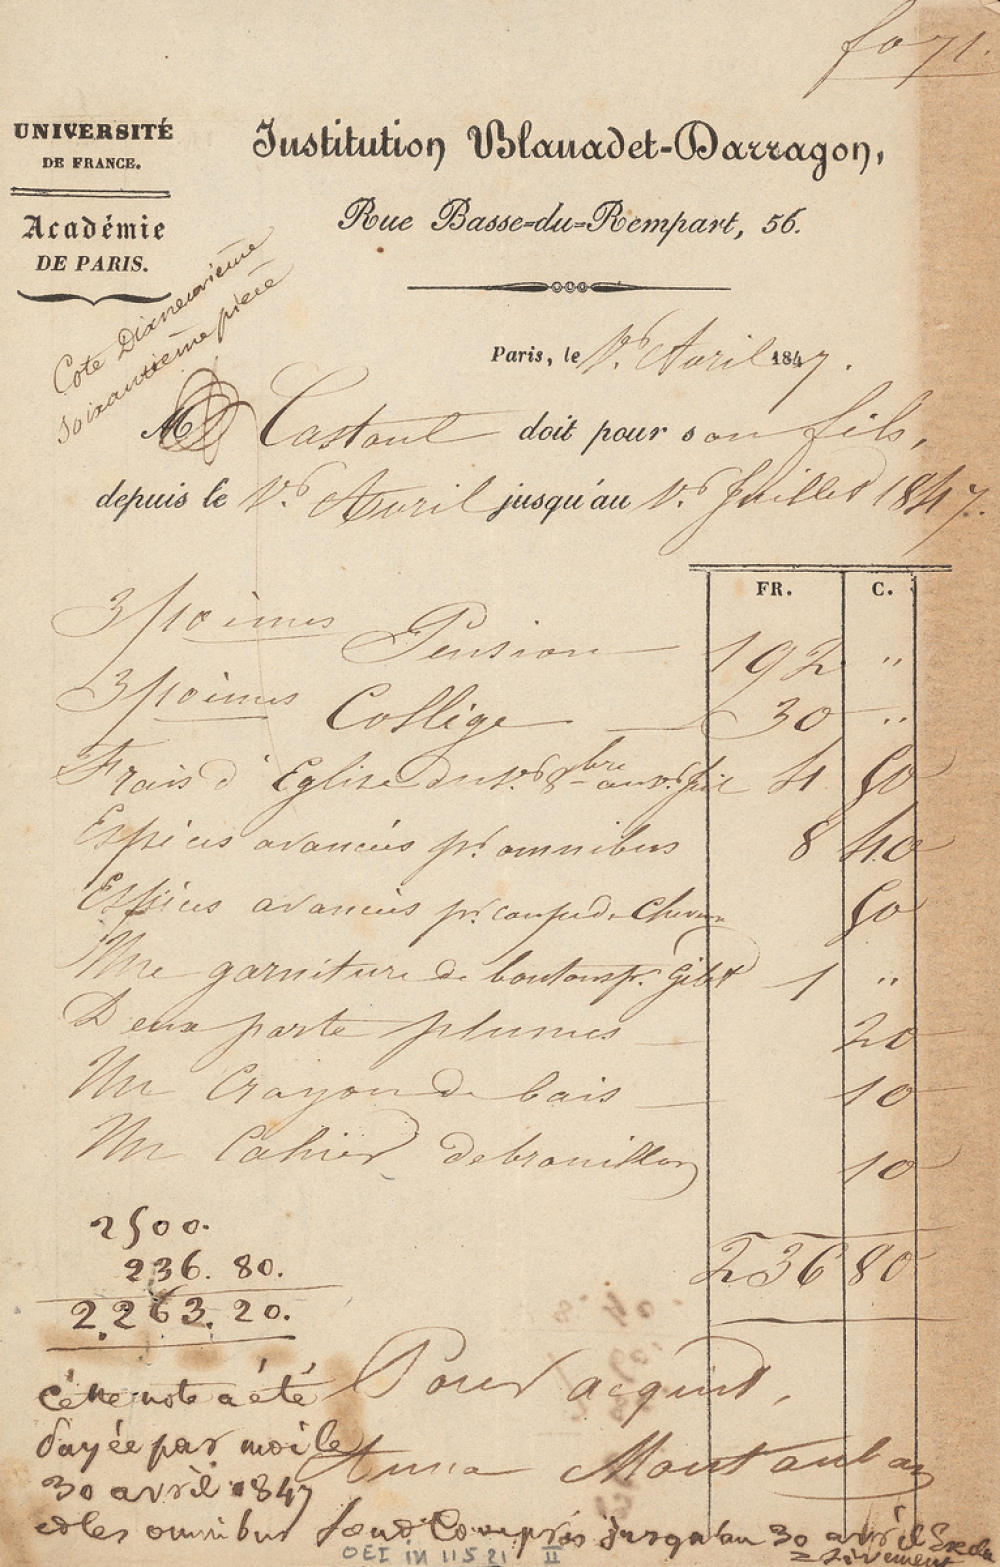 fo 71.
UNIVERSITÉ
DE FRANCE.
Académie
DE PARIS.
Institution Blanadet-Darragon,
Rue Basse-du-Rempart, 56.
Cote Dixneuvième
Soixantième pièce
Paris, le 1er. Avril 1847.
M Castoul doit pour son fils,
depuis le 1er. Avril jusqu'au 1er. Juillet 1847.
FR. C.
3/10èmes Pension 192 "
3/10èmes Collège 30 "
Frais d'Eglise du 1er. 8bre au 1er. Jer 4 50
Espèces avancées pr. omnibus 8 40
Espèces avancées pr. coupe de Cheveux 50
Une garniture de boutons pr. Gilet 1 "
Deux porte plumes 20
Un Crayon de bois 10
Un Cahier de brouillon 10
236 80
2500.
236. 80.
2.263. 20.
Pour acquit,
Cette note a été
payée par moi le
30 avril 1847
et les omnibus sont Compris jusqu'au 30 avril
OEI IN 115 21 II